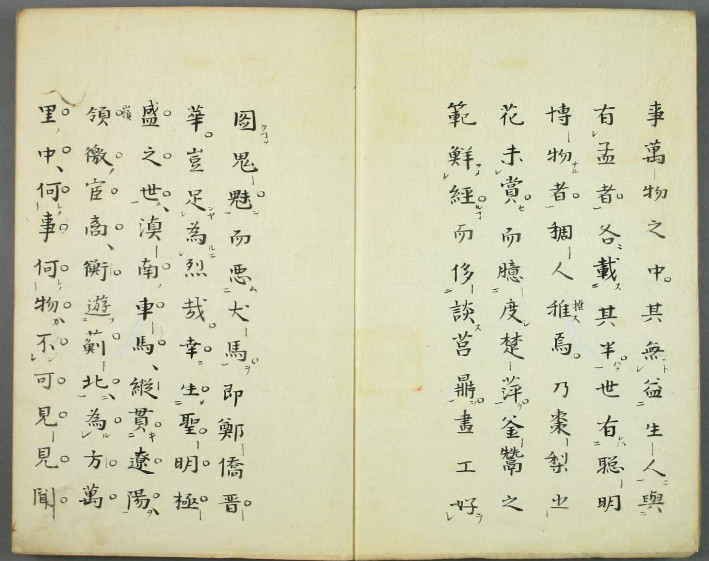 事萬物之中其無益生人與
有孟者各載其半世有聰明
博物者稠人稚焉乃棗梨之
花未賞而臆度楚萍釜鬵之
範鮮經而侈談莒鼎畫工好
圖鬼魅而悪犬馬即鄭僑晋
華豈足為烈哉幸生聖明極
盛之世滇南車馬縱貫遼陽
領徼宦商衡遊薊北為方萬
里中何事何物不可見見聞